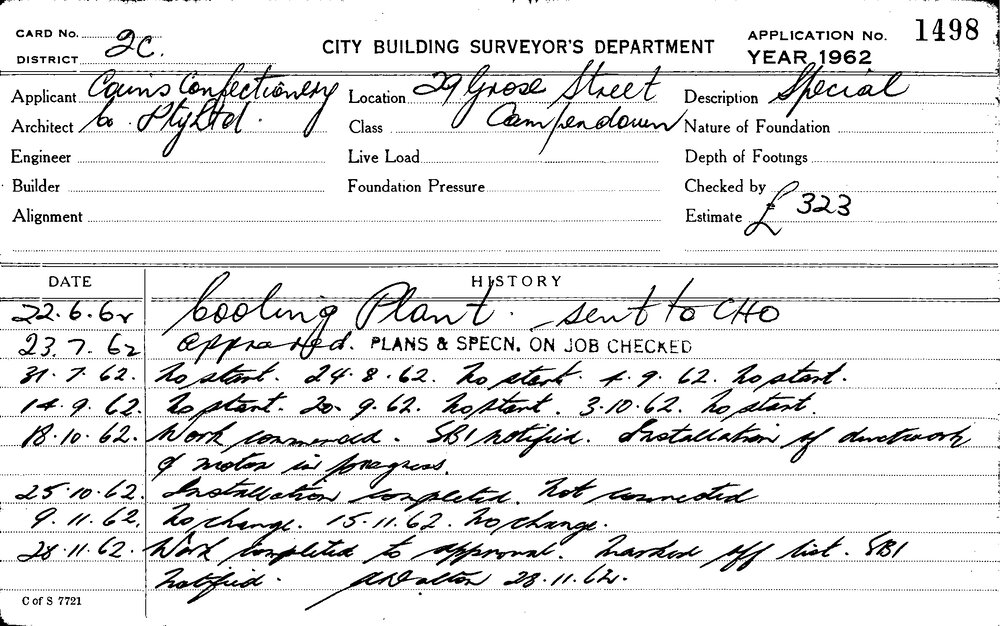 CARD No. 2C. CITY BUILDING SURVEYOR'S DEPARTMENT APPLICATION No. 1498
DISTRICT YEAR 1962
Applicant Cains Confectionery Location 29 Grose Street Description Special
Architect Co. Pty Ltd. Class Camperdown Nature of Foundation
Engineer Live Load Depth of Footings
Builder Foundation Pressure Checked by
Alignment Estimate £ 323
DATE HISTORY
22.6.62 Cooling Plant. sent to CHO
23.7.62 approved. PLANS & SPECN. ON JOB CHECKED
31.7.62. No start. 24.8.62. No start. 4.9.62. No start.
14.9.62. No start. 20.9.62. No start. 3.10.62. No start.
18.10.62. Work commenced. SBI notified. Installation of ductwork
& motor in progress
25.10.62. Installation completed. Not connected
9.11.62. No change. 15.11.62. No change.
28.11.62. Work completed to approval. Marked off list. SBI
notified. 28.11.62.
C of S 7721